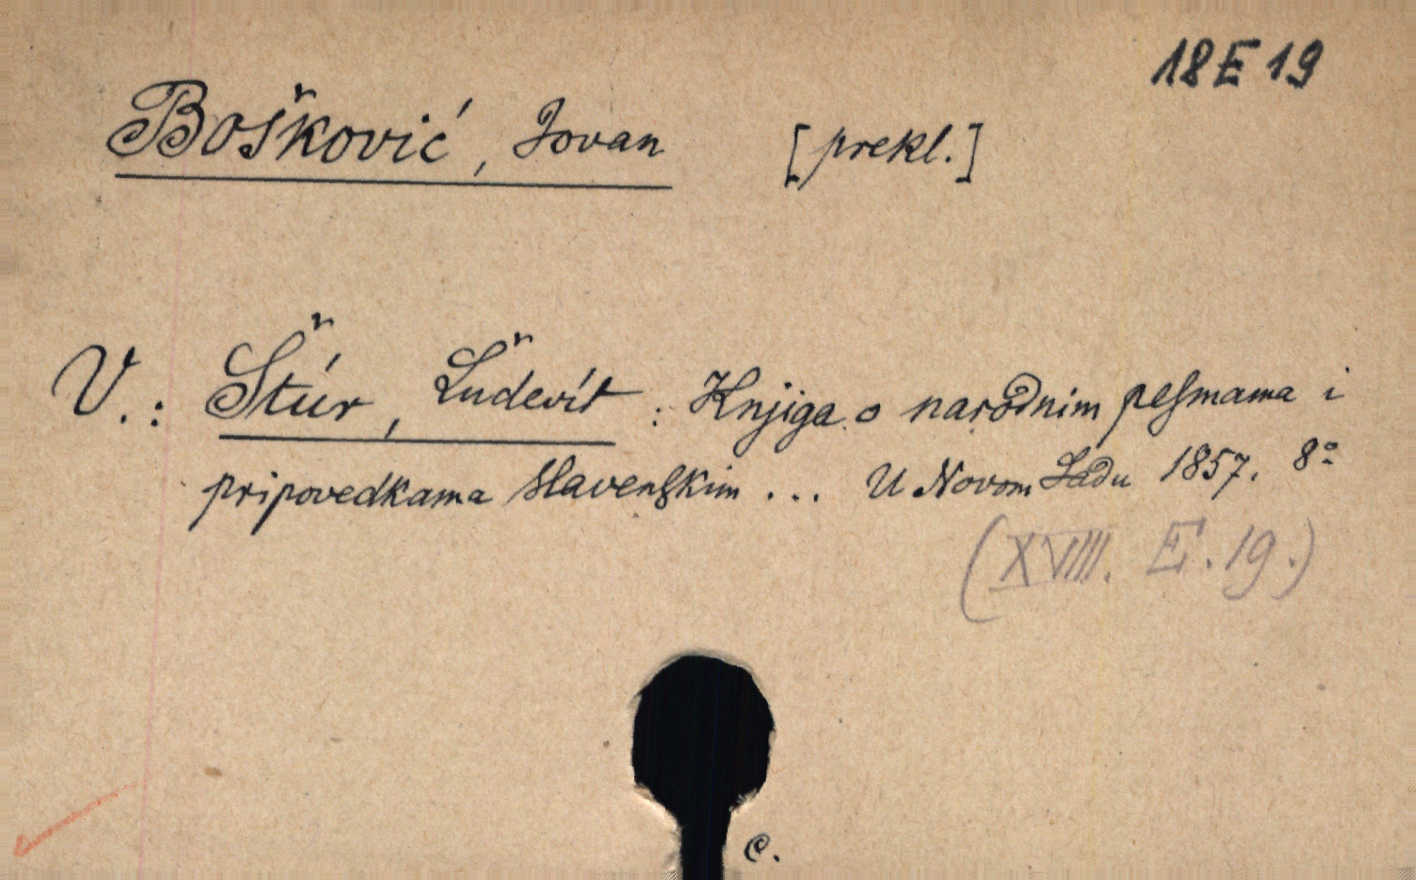 18E19
Bošković, Jovan [prekl.]
V.: Štúr, Ľudevít: Knjiga o narodnim pesmama i
pripovedkama slavenskim ... U Novom Sadu 1857. 8º
(XVIII. E. 19.)
C.